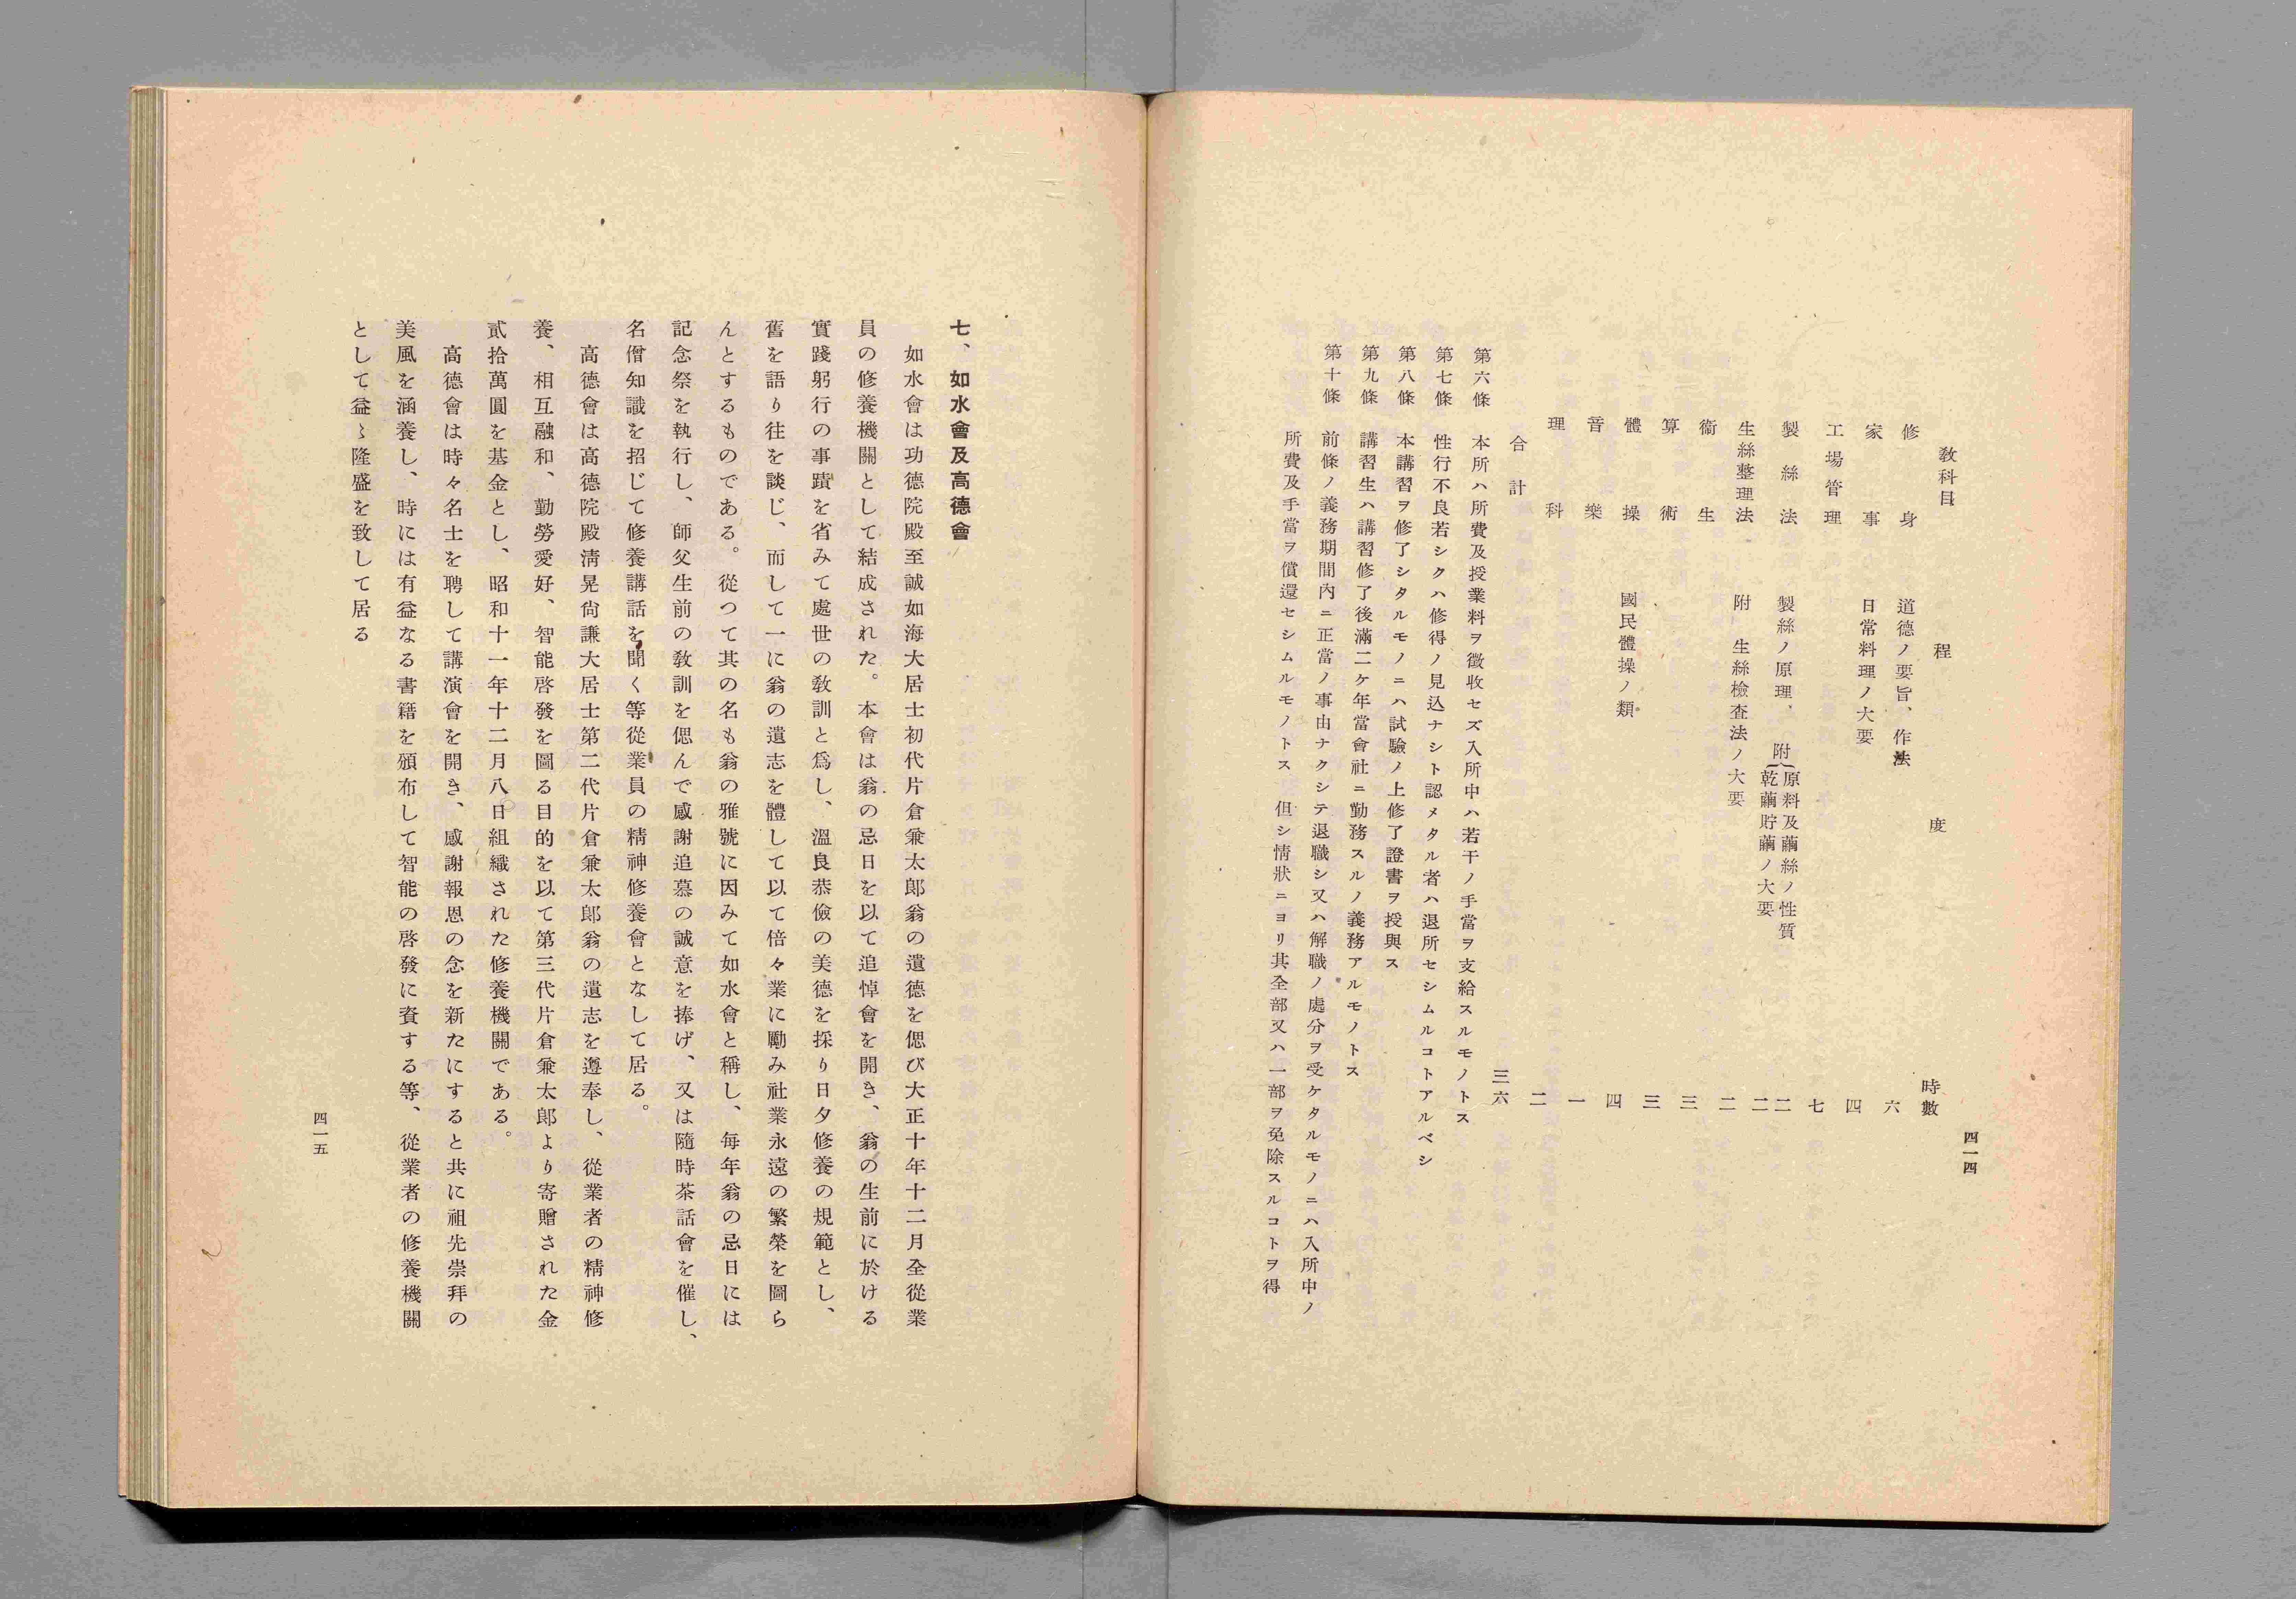 四一四
教科目 程度 時數
修身 道德ノ要旨、作法 六
家事 日常料理ノ大要 四
工場管理 七
製絲法 製絲ノ原理、附{原料及繭絲ノ性質 乾繭貯繭ノ大要 二二
生絲整理法 附 生絲檢査法ノ大要 二
衞生 三
算術 三
體操 國民體操ノ類 四
音樂 一
理科 二
合計 三六
第六條 本所ハ所費及授業料ヲ徵收セズ入所中ハ若干ノ手當ヲ支給スルモノトス
第七條 性行不良若シクハ修得ノ見込ナシト認メタル者ハ退所セシムルコトアルベシ
第八條 本講習ヲ修了シタルモノニハ試驗ノ上修了證書ヲ授與ス
第九條 講習生ハ講習修了後滿二ケ年當會社ニ勤務スルノ義務アルモノトス
第十條 前條ノ義務期間內ニ正當ノ事由ナクシテ退職シ又ハ解職ノ處分ヲ受ケタルモノニハ入所中ノ
所費及手當ヲ償還セシムルモノトス 但シ情狀ニヨリ其全部又ハ一部ヲ免除スルコトヲ得
七、如水會及高德會
如水會は功德院殿至誠如海大居士初代片倉兼太郞翁の遺德を偲び大正十年十二月全從業
員の修養機關として結成された。本會は翁の忌日を以て追悼會を開き、翁の生前に於ける
實踐躬行の事蹟を省みて處世の敎訓と爲し、溫良恭儉の美德を採り日夕修養の規範とし、
舊を語り往を談じ、而して一に翁の遺志を體して以て倍々業に勵み社業永遠の繁榮を圖ら
んとするものである。從つて其の名も翁の雅號に因みて如水會と稱し、每年翁の忌日には
記念祭を執行し、師父生前の敎訓を偲んで感謝追慕の誠意を捧げ、又は隨時茶話會を催し、
名僧知識を招じて修養講話を聞く等從業員の精神修養會となして居る。
高德會は高德院殿淸晃尙謙大居士第二代片倉兼太郞翁の遺志を遵奉し、從業者の精神修
養、相互融和、勤勞愛好、智能啓發を圖る目的を以て第三代片倉兼太郞より寄贈された金
貳拾萬圓を基金とし、昭和十一年十二月八日組織された修養機關である。
高德會は時々名士を聘して講演會を開き、感謝報恩の念を新たにすると共に祖先崇拜の
美風を涵養し、時には有益なる書籍を頒布して智能の啓發に資する等、從業者の修養機關
として益〻隆盛を致して居る
四一五